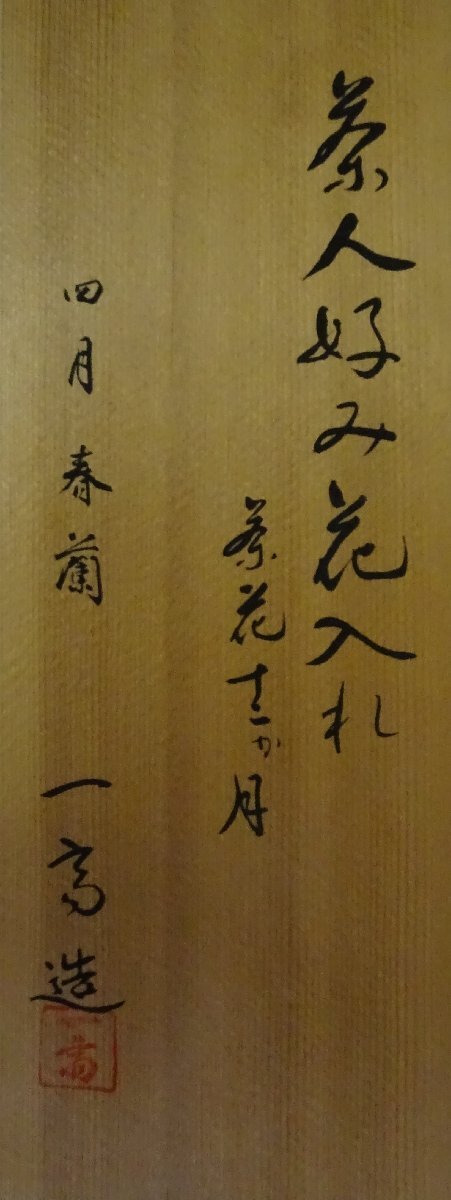 茶人好み花入札
茶花十二か月
四月 春蘭
一斎造